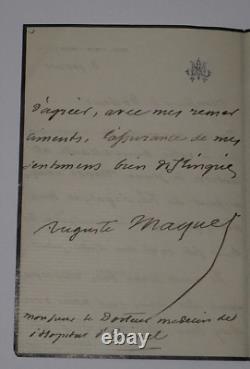 d'agréer, avec mes remer
ciments, l'assurance de mes
sentiments bien distingués
Auguste Maquet
monsieur le Docteur medecin de
l'hopital
© www.ebay.com